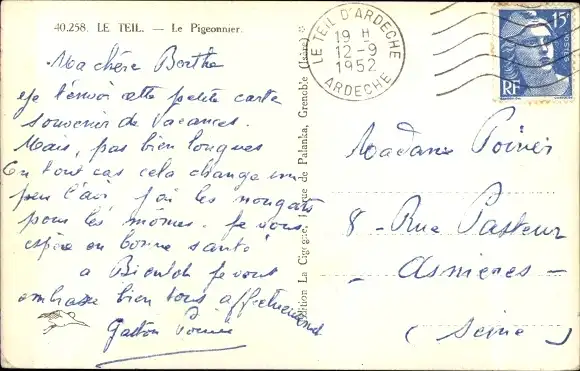 40.258. LE TEIL. — Le Pigeonnier.
Ma chère Berthe
je t'envoi cette petite carte
souvenir de vacances.
Mais, pas bien longues
En tout cas cela change un
peu l'air, j'ai les nougats
pour les mômes. Je vous
espère en bonne santé
a Bientôt je vous
embrasse bien tous affectueusement
Gaston Poirier
Edition La Cigogne, 1, rue de Palanka, Grenoble (Isère)
LE TEIL D'ARDECHE
19 H
12-9
1952
ARDECHE
15F
POSTES
RF
Madame Poirier
8 - Rue Pasteur
- Asnieres -
(Seine)